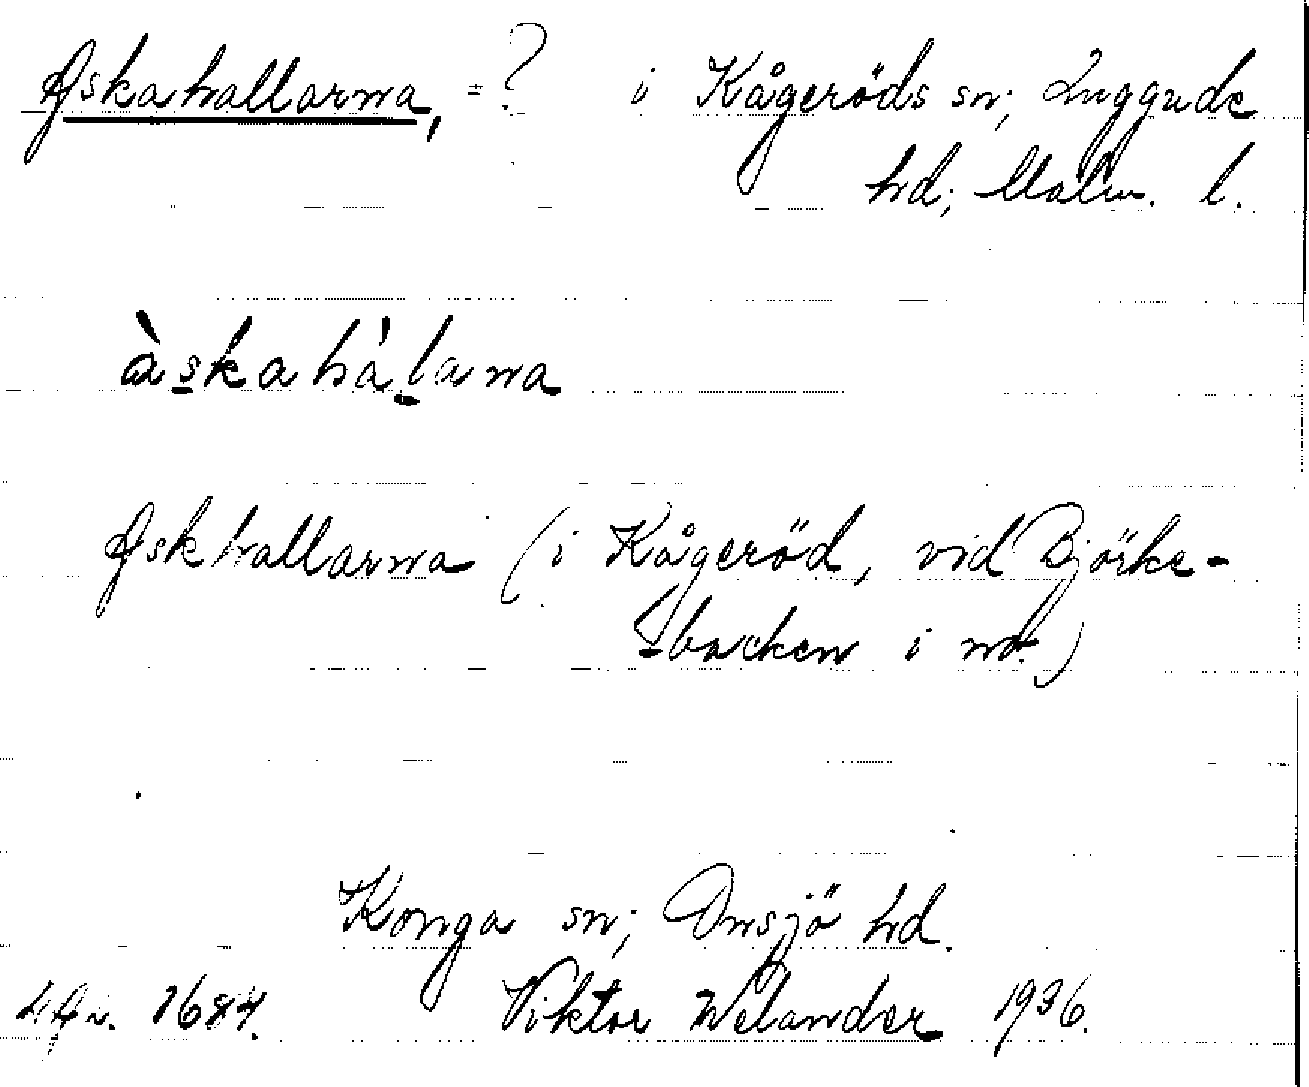 Askahallarna, = ? i Kågeröds sn; Luggude
hd; Malm. l.
àskahàlarna
Askhallarna (i Kågeröd, vid Björke-
backen i no.)
Konga sn; Onsjö hd.
1684. Viktor Welander 1936.